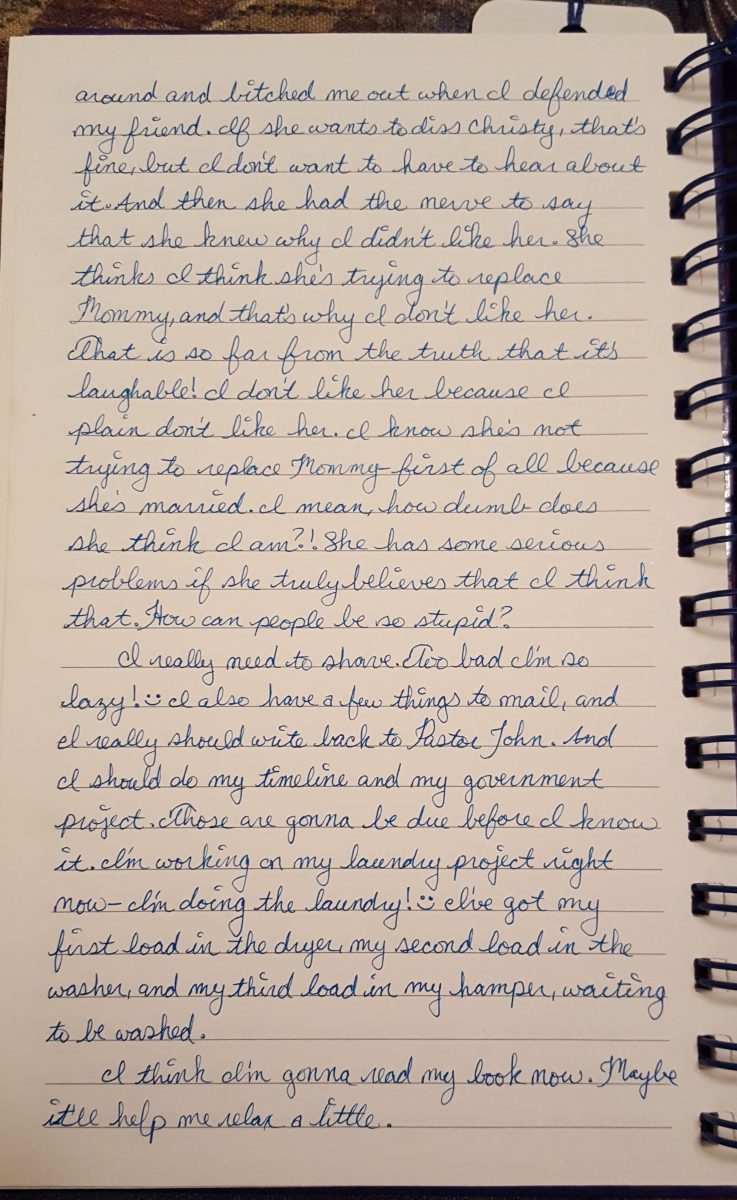 around and bitched me out when I defended
my friend. If she wants to diss Christy, that's
fine, but I don't want to have to hear about
it. And then she had the nerve to say
that she knew why I didn't like her. She
thinks I think she's trying to replace
Mommy, and that's why I don't like her.
That is so far from the truth that it's
laughable! I don't like her because I
plain don't like her. I know she's not
trying to replace Mommy-first of all because
she's married. I mean, how dumb does
she think I am?! She has some serious
problems if she truly believes that I think
that. How can people be so stupid?
I really need to shave. Too bad I'm so
lazy! ☺ I also have a few things to mail, and
I really should write back to Pastor John. And
I should do my timeline and my government
project. Those are gonna be due before I know
it. I'm working on my laundry project right
now-I'm doing the laundry! ☺ I've got my
first load in the dryer, my second load in the
washer, and my third load in my hamper, waiting
to be washed.
I think I'm gonna read my book now. Maybe
it'll help me relax a little.